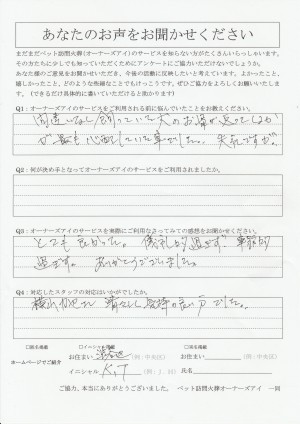 あなたのお声をお聞かせください
まだまだペット訪問火葬(オーナーズアイ)のサービスを知らない方がたくさんいらっしゃいます。
そのかたたちに少しでも知っていただくためにアンケートにご協力いただけないでしょうか。
あなた様のご意見をお聞かせいただき、今後の活動に反映したいと考えています。よかったこと、
嬉しかったこと、どのような些細なことでもけっこうです。ぜひご協力をよろしくお願いいたしま
す。(できるだけ具体的に書いていただけると助かります)
Q1:オーナーズアイのサービスをご利用される前に悩んでいたことをお教えください。
間違いなく飼っていた犬のお骨が返ってくるか
が最も心配していた事でした。失礼ですが。
Q2:何が決め手となってオーナーズアイのサービスをご利用されましたか。
Q3:オーナーズアイのサービスを実際にご利用なさってみての感想をお聞かせください。
とても良かった。儀礼的過ぎず事務的
過ぎず。ありがとうございました。
Q4:対応したスタッフの対応はいかがでしたか。
清々しく気持の良い方でした。
□匿名掲載 □イニシャル掲載 □実名掲載
ホームページでご紹介
お住まい (例:中央区) お住まい (例:中央区)
イニシャル K.T (例:J.00) 氏名
ご協力、本当にありがとうございました。 ペット訪問火葬オーナーズアイ 一同